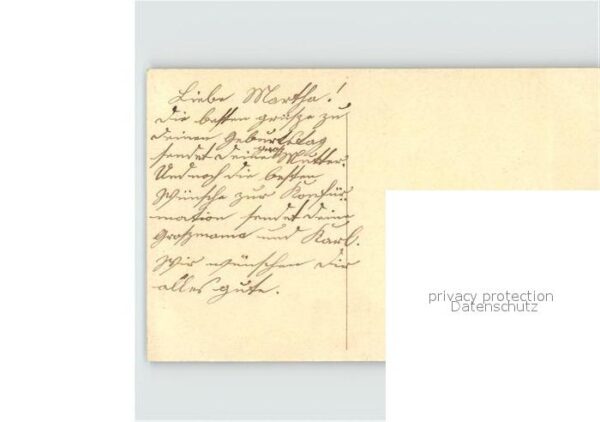 Liebe Martha!
Die besten grüsze zu
deinen Geburtstag
sendet Deine Mutter.
Und noch die besten
Wünsche zur Konfür-
mation sendet Deine
Groszmama und Karl.
Wir wünschen Dir
alles gute.
privacy protection
Datenschutz